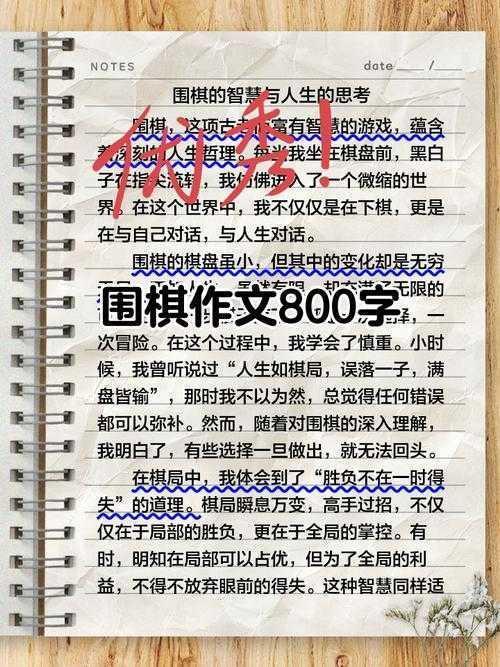 NOTES
date /
围棋的智慧与人生的思考
优秀!
围棋,这项古老而富有智慧的游戏,蕴含
着深刻的人生哲理。每当我坐在棋盘前,黑白
子在指尖流转,我仿佛进入了一个微缩的世
界。在这个世界中,我不仅仅是在下棋,更是
在与自己对话,与人生对话。
围棋的棋盘虽小,但其中的变化却是无穷
无限的
围棋作文800字
择,一
次冒险。在这个过程中,我学会了慎重。小时
候,我曾听说过“人生如棋局,误落一子,满
盘皆输”,那时我不以为然,总觉得任何错误
都可以弥补。然而,随着对围棋的深入理解,
我明白了,有些选择一旦做出,就无法回头。
在棋局中,我体会到了“胜负不在一时得
失”的道理。棋局瞬息万变,高手过招,不仅
仅在于局部的胜负,更在于全局的掌控。有
时,明知在局部可以占优,但为了全局的利
益,不得不放弃眼前的得失。这种智慧同样适